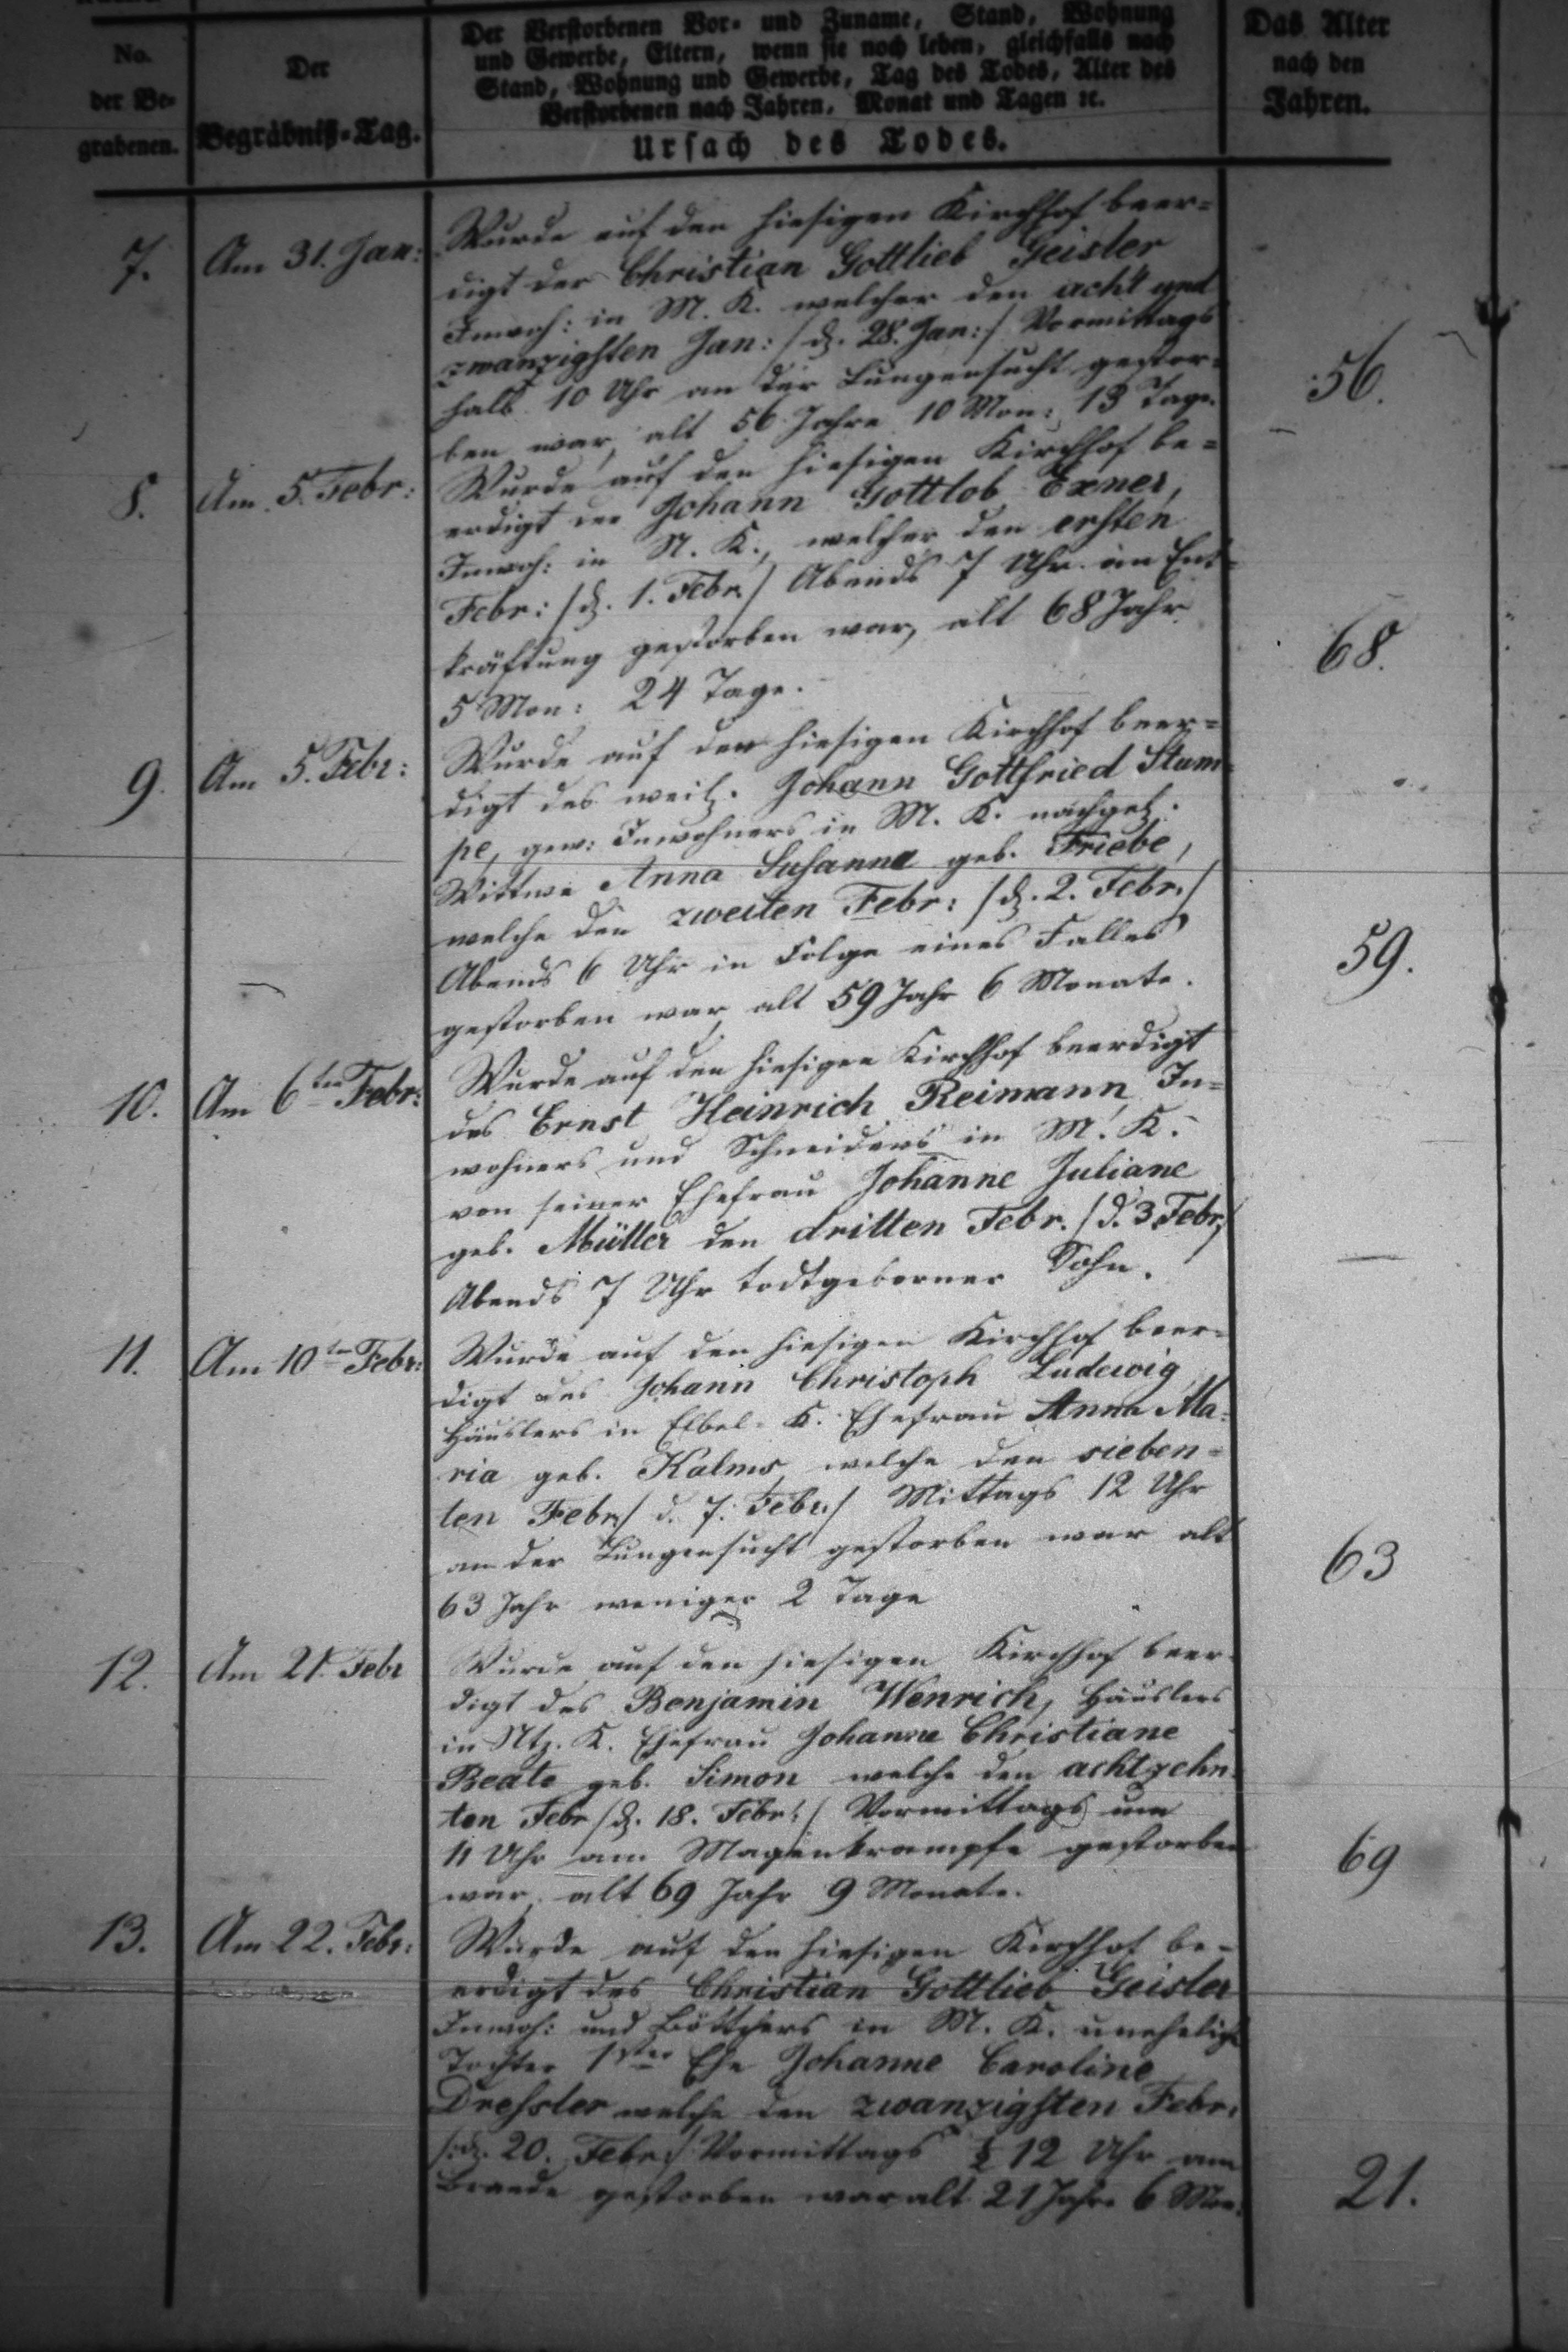 No.
der Be-
grabenen.
Der
Begräbniß-Tag.
Der Verstorbenen Vor- und Zuname, Stand, Wohnung
und Gewerbe, Eltern, wenn sie noch leben, gleichfalls nach
Stand, Wohnung und Gewerbe, Tag des Todes, Alter des
Verstorbenen nach Jahren, Monat und Tagen ꝛc.
Ursach des Todes.
Das Alter
nach den
Jahren.
7.
Am 31. Jan:
Wurde auf den hiesigen Kirchhof beer=
digt der Christian Gottlieb Geisler
Inwoh: in M. K. welcher den acht und
zwanzigsten Jan: /d. 28. Jan:/ Vormittags
halb 10 Uhr an der Lungensucht gestor=
ben war, alt 56 Jahre 10 Mon: 13 Tage.
56.
8.
Am 5. Febr:
Wurde auf den hiesigen Kirchhof be=
erdigt der Johann Gottlob Exner,
Inwoh: in N. K., welcher den ersten
Febr: /d. 1. Febr./ Abends 7 Uhr an Ent=
kräftung gestorben war, alt 68 Jahr
5 Mon: 24 Tage.
68.
9.
Am 5. Febr:
Wurde auf den hiesigen Kirchhof beer=
digt des weil. Johann Gottfried Stum=
pe, gew: Inwohners in M. K. nachgel.
Wittwe Anna Susanna geb. Friebe,
welche den zweiten Febr: /d. 2. Febr./
Abends 6 Uhr in Folge eines Falles
gestorben war alt 59 Jahr 6 Monate.
59.
10.
Am 6ten Febr:
Wurde auf den hiesigen Kirchhof beerdigt
des Ernst Heinrich Reimann, In=
wohners und Schneiders in M. K.
von seiner Ehefrau Johanne Juliane
geb. Müller den dritten Febr. /d. 3 Febr./
Abends 7 Uhr todtgeborner Sohn.
—
11.
Am 10ten Febr:
Wurde auf den hiesigen Kirchhof beer=
digt des Johann Christoph Ludewig
Häuslers in Elbel. K. Ehefrau Anna Ma=
ria geb. Kalms, welche den sieben=
ten Febr/ d. 7. Febr./ Mittags 12 Uhr
an der Lungensucht gestorben war alt
63 Jahr weniger 2 Tage
63
12.
Am 21. Febr
Wurde auf den hiesigen Kirchhof beer=
digt des Benjamin Wenrich, Häuslers
in Ntz. K. Ehefrau Johanne Christiane
Beate geb. Simon welche den achtzehn=
ten Febr /d. 18. Febr:/ Vormittags um
11 Uhr am Magenkrampfe gestorben
war, alt 69 Jahr 9 Monate.
69
13.
Am 22. Febr:
Wurde auf den hiesigen Kirchhof be=
erdigt des Christian Gottlieb Geisler
Inwoh: und Böttchers in M. K. unehelige
Tochter 1ster Ehe Johanne Caroline
Dressler welche den zwanzigsten Febr:
/:d. 20. Febr:/ Vormittags ½ 12 Uhr am
Brande gestorben war alt 21 Jahr 6 Mon:
21.